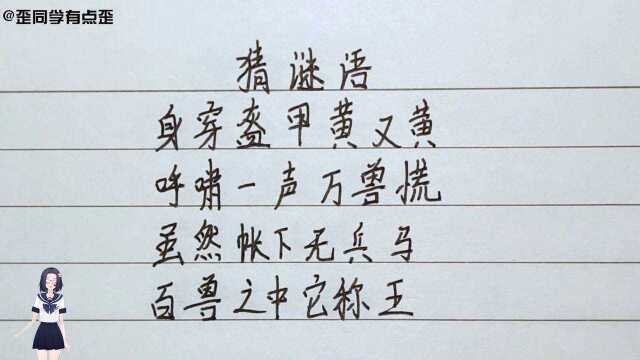 @歪同学有点歪
猜谜语
身穿盔甲黄又黄
呼啸一声万兽慌
虽然帐下无兵马
百兽之中它称王